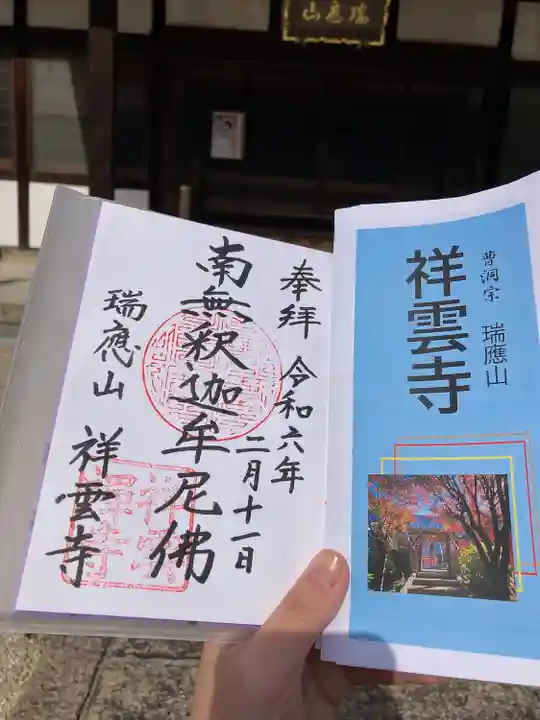 瑞應山
奉拝 令和六年
二月十一日
南無釈迦牟尼佛
瑞應山
祥雲寺
曹洞宗 瑞應山
祥雲寺